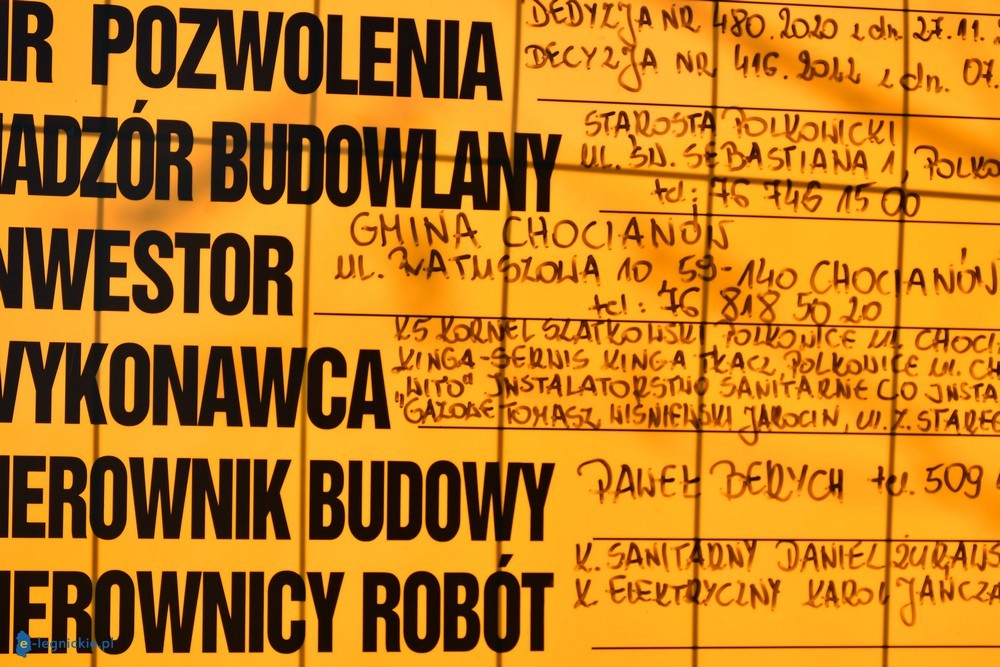 NR POZWOLENIA
DEDYZJA NR 480.2020 z dn. 27.11.
DECYZJA NR 416.2022 z dn. 07.
NADZÓR BUDOWLANY
STAROSTA POLKOWICKI
UL. ŚW. SEBASTIANA 1, POLKO
tel: 76 746 15 00
INWESTOR
GMINA CHOCIANÓW
UL. RATUSZOWA 10 59-140 CHOCIANÓW
tel: 76 818 50 20
WYKONAWCA
KS KORNEL SZATKOWSKI POLKOWICE UL. CHOCI
KINGA-SERWIS KINGA TKACZ, POLKOWICE UL. CH
"WITO" INSTALATORSTWO SANITARNE CO INSTA
GAZOWE TOMASZ WIŚNIEWSKI JAROCIN, UL. Z. STARE
IEROWNIK BUDOWY
PAWEŁ BERYCH tel. 509
IEROWNICY ROBÓT
K. SANITARNY DANIEL ŻURAWS
K. ELEKTRYCZNY KAROL JAŃCZA
e-legnickie.pl